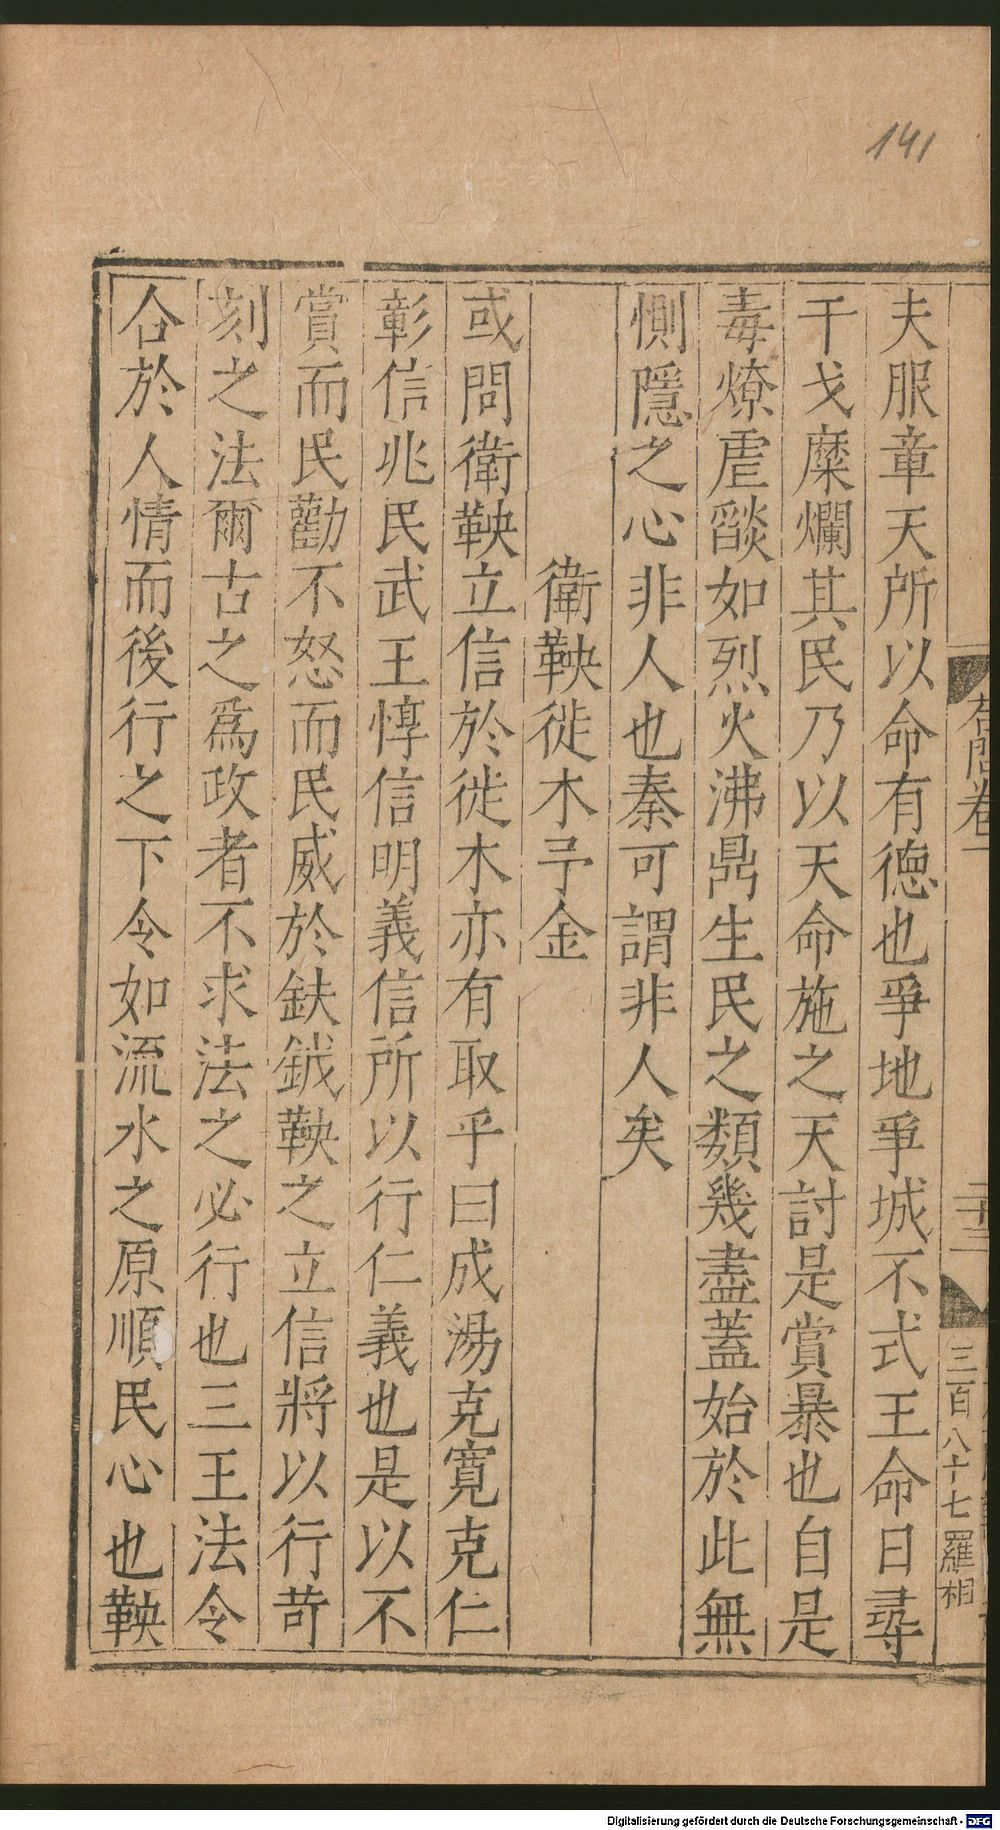 141
夫服章天所以命有德也爭地爭城不式王命日尋
干戈糜爛其民乃以天命施之天討是賞暴也自是
毒燎虐燄如烈火沸鼎生民之類幾盡蓋始於此無
惻隱之心非人也秦可謂非人矣
衛鞅徙木予金
或問衛鞅立信於徙木亦有取乎曰成湯克寬克仁
彰信兆民武王惇信明義信所以行仁義也是以不
賞而民勸不怒而民威於鈇鉞鞅之立信將以行苛
刻之法爾古之爲政者不求法之必行也三王法令
合於人情而後行之下令如流水之原順民心也鞅
答問卷一
二十三
三百八十七 羅相
Digitalisierung gefördert durch die Deutsche Forschungsgemeinschaft - DFG